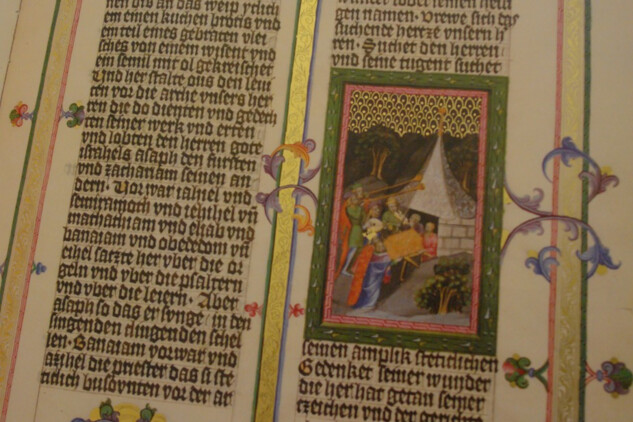 nen bis an das weip ytlich
em einen kuchen brotis vnd
em teil eines gebraten vlei
sches von einem wisent vnd
ein semil mit ol gekreischet
Vnd her stalte ons den leui
ten vor die arche vnsers her
ren die do dienten vnd gedech
ten seiner werk vnd erten
vnd lobten den herren gote
israhels asaph den fursten
vnd zachariam seinen an
dern. Vor war iahiel vnd
semiramoth vnd iehihel vn̄
mathathiam vnd eliab vnd
banaiam vnd obededom vn̄
eihel satzte her vber die or
geln vnd vber die psaltern
vnd vber die leiern. Aber
asaph so das er sunge in den
singenden clingenden schel
len. Banaiam vorwar vnd
azihel die priester das si ste
ticlich busovnten vor der ar
gen namen. Vrewe sich das
suchende hertze vnsern h
ren. Suchet den herren
vnd seine tugent suchet
seinen amplik stetticlichen
Gedenket seiner wunder
die her hat getan seiner
tzeichen vnd der gerichte